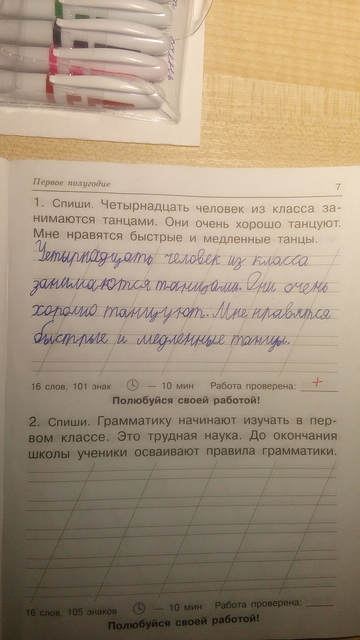 Первое полугодие 7
1. Спиши. Четырнадцать человек из класса за-
нимаются танцами. Они очень хорошо танцуют.
Мне нравятся быстрые и медленные танцы.
Четырнадцать человек из класса
занимаются танцами. Они очень
хорошо танцуют. Мне нравятся
быстрые и медленные танцы.
16 слов, 101 знак — 10 мин Работа проверена: +
Полюбуйся своей работой!
2. Спиши. Грамматику начинают изучать в пер-
вом классе. Это трудная наука. До окончания
школы ученики осваивают правила грамматики.
16 слов, 105 знаков — 10 мин Работа проверена:
Полюбуйся своей работой!